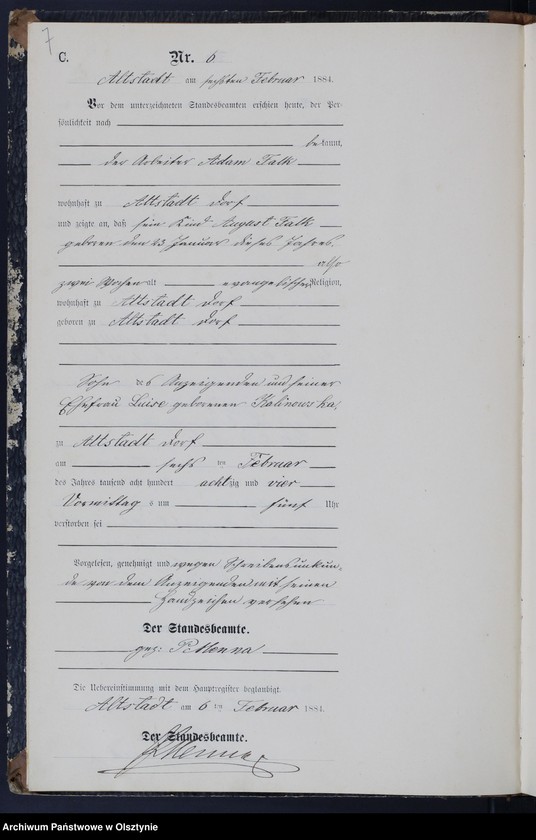 7
C. Nr. 6
Altstadt am sechsten Februar 1884.
Vor dem unterzeichneten Standesbeamten erschien heute, der Per-
sönlichkeit nach
bekannt,
der Arbeiter Adam Falk
wohnhaft zu Altstadt Dorf
und zeigte an, daß sein Kind August Falk
geboren den 23 Januar dieses Jahres
also
zwei Wochen alt evangelischer Religion,
wohnhaft zu Altstadt Dorf
geboren zu Altstadt Dorf
Sohn des Anzeigenden und seiner
Ehefrau Luise geborenen Kalinowska,
zu Altstadt Dorf
am sechs ten Februar
des Jahres tausend acht hundert achtzig und vier
Vormittag s um fünf Uhr
verstorben sei
Vorgelesen, genehmigt und wegen Schreibensunkun-
de von dem Anzeigenden mit seinen
Handzeichen versehen
Der Standesbeamte.
gez:
Die Uebereinstimmung mit dem Hauptregister beglaubigt.
Altstadt am 6 ten Februar 1884.
Der Standesbeamte.
Archiwum Państwowe w Olsztynie